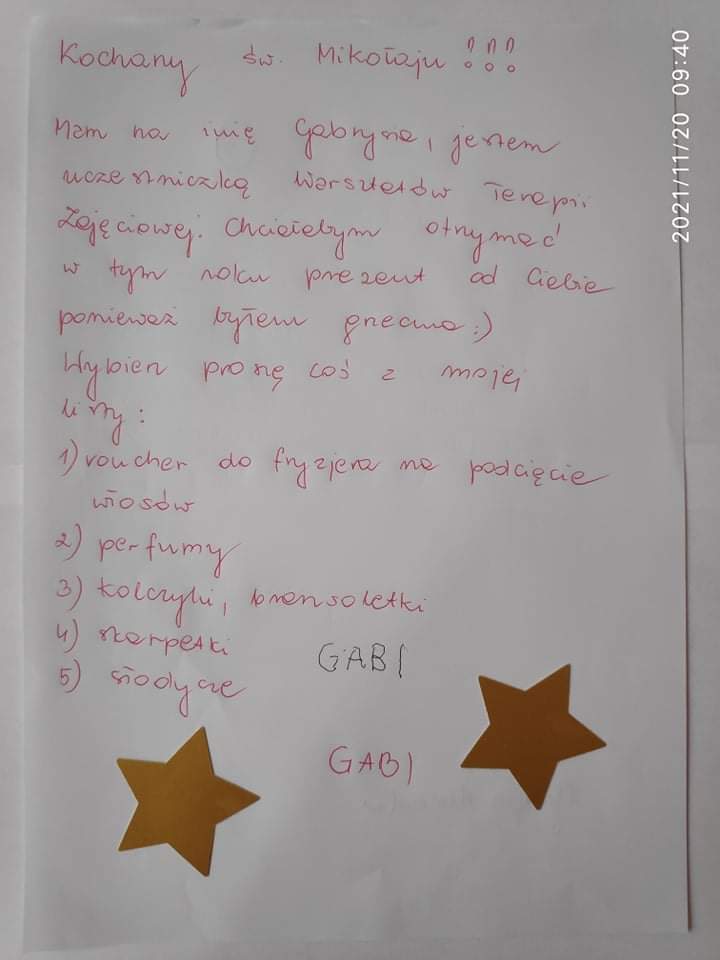 Kochany św. Mikołaju !!!
Mam na imię Gabrysia, jestem
uczestniczką Warsztatów Terapii
Zajęciowej. Chciałabym otrzymać
w tym roku prezent od Ciebie
ponieważ byłam grzeczna :)
Wybierz proszę coś z mojej
listy:
1) voucher do fryzjera na podcięcie
włosów
2) perfumy
3) kolczyki, bransoletki
4) skarpetki
5) słodycze
GABI
GABI
2021/11/20 09:40